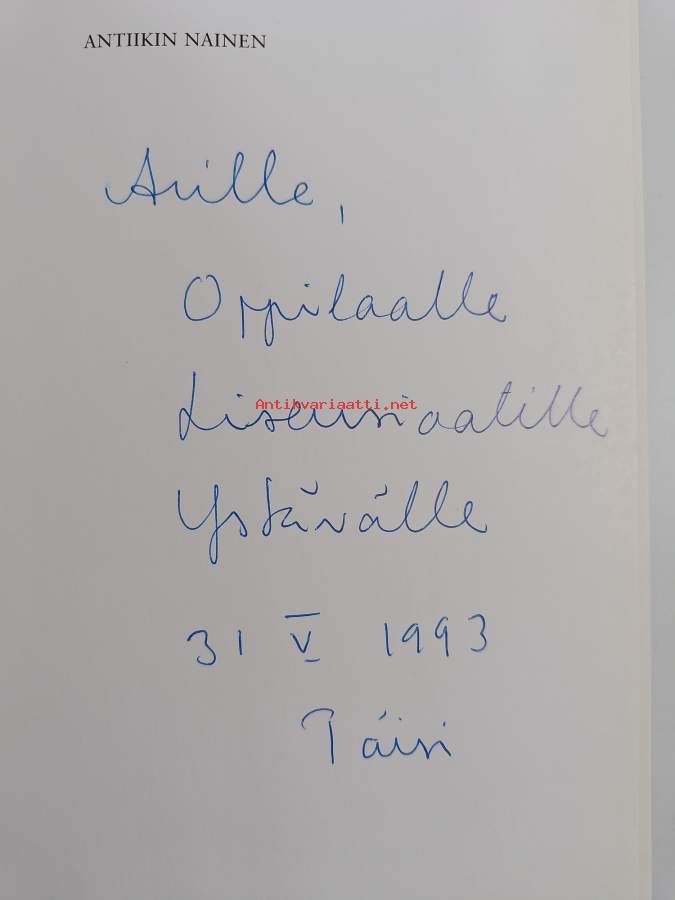 ANTIIKIN NAINEN
Arille,
Oppilaalle
Antikvariaatti.net
Lisensiaatille
Ystävälle
31 V 1993
Päivi